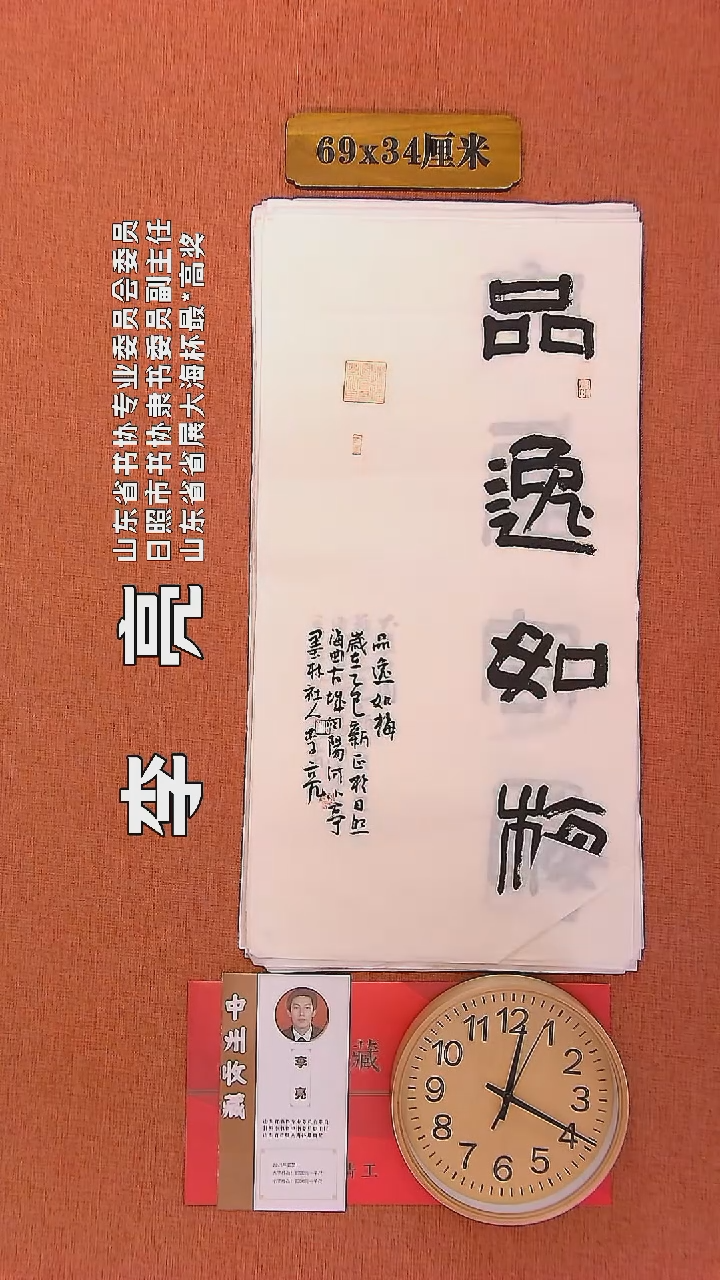 69x34厘米
山东省书协专业委员会委员
日照市书协隶书委员副主任
山东省省展大海杯最*高奖
李 亮
品逸如梅
品逸如梅
歲在乙巳新正於日照
海曲古城朝陽河小亭
墨林社人李亮
中州收藏
李亮
藏
12
1
2
3
4
5
6
7
8
9
10
11